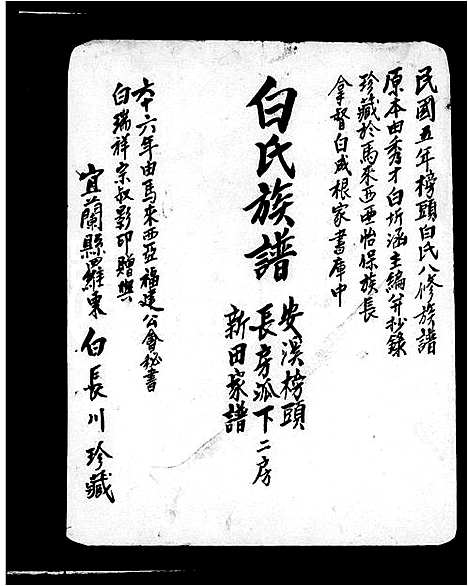 民國五年榜頭白氏八修族譜
原本由秀才白圻涵主編并抄錄
珍藏於馬來西亞怡保族長
拿督白成根家書庫中
白氏族譜
安溪榜頭
長房派下二房
新田家譜
六十六年由馬來西亞福建公會秘書
白瑞祥宗叔影印贈與
宜蘭縣羅東 白長川珍藏